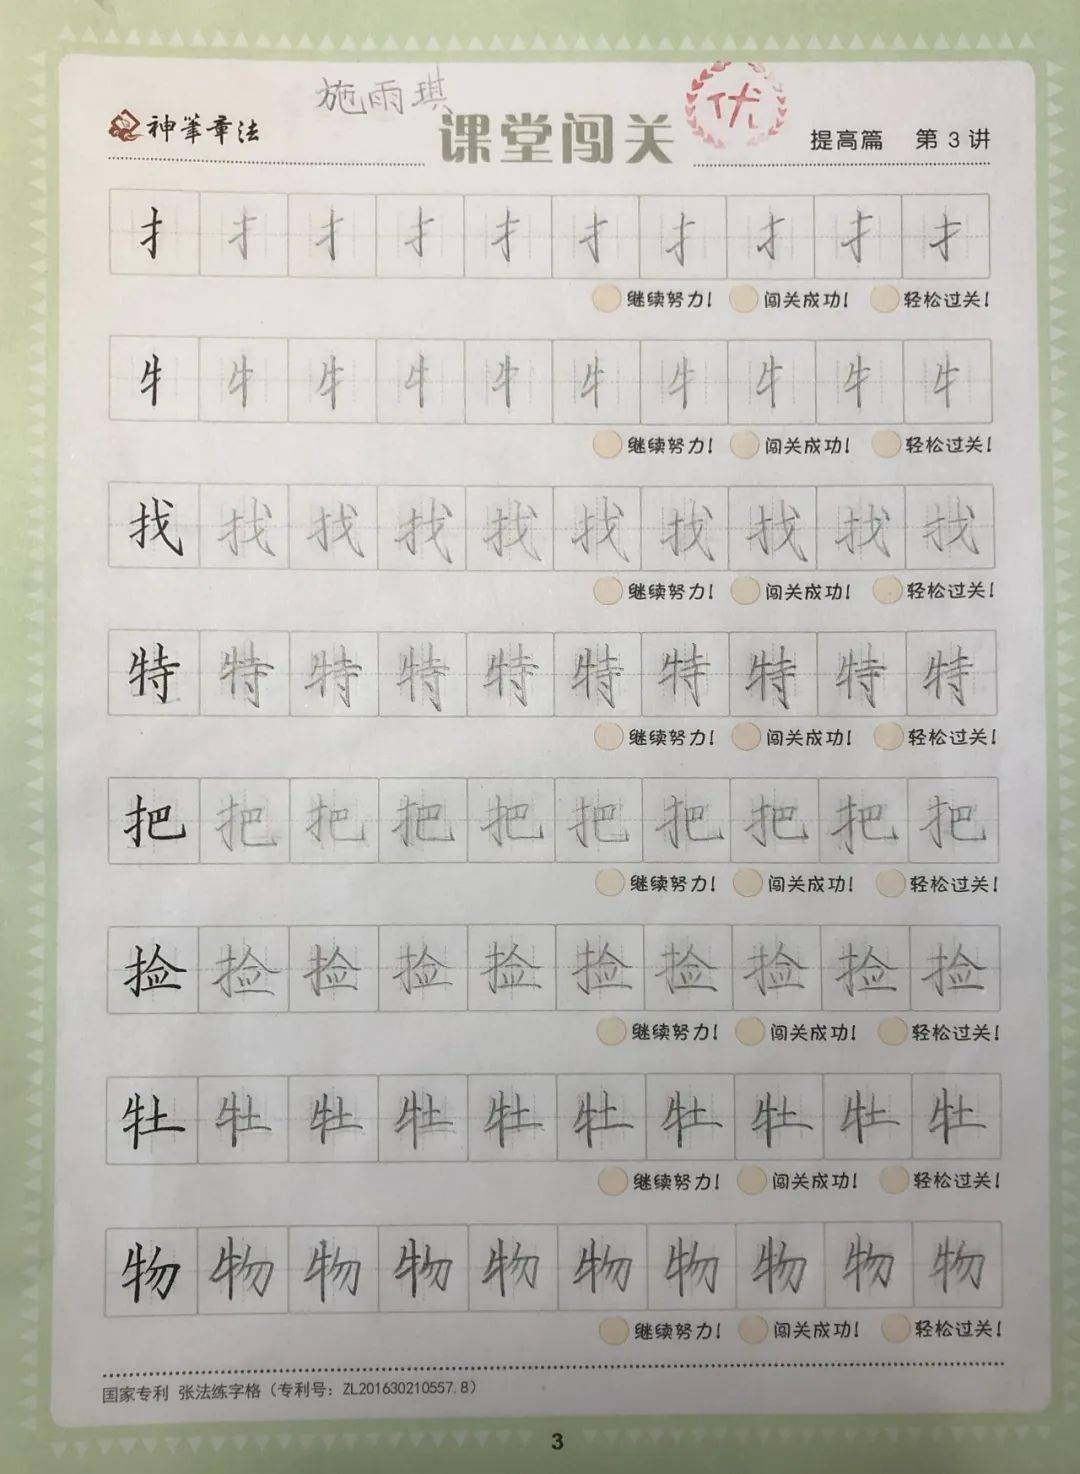 施雨琪
神笔章法 课堂闯关 优 提高篇 第3讲
扌 扌 扌 扌 扌 扌 扌 扌 扌 扌
继续努力! 闯关成功! 轻松过关!
牜 牜 牜 牜 牜 牜 牜 牜 牜 牜
继续努力! 闯关成功! 轻松过关!
找 找 找 找 找 找 找 找 找 找
继续努力! 闯关成功! 轻松过关!
特 特 特 特 特 特 特 特 特 特
继续努力! 闯关成功! 轻松过关!
把 把 把 把 把 把 把 把 把 把
继续努力! 闯关成功! 轻松过关!
捡 捡 捡 捡 捡 捡 捡 捡 捡 捡
继续努力! 闯关成功! 轻松过关!
牡 牡 牡 牡 牡 牡 牡 牡 牡 牡
继续努力! 闯关成功! 轻松过关!
物 物 物 物 物 物 物 物 物 物
继续努力! 闯关成功! 轻松过关!
国家专利 张法练字格（专利号：ZL201630210557.8）
3